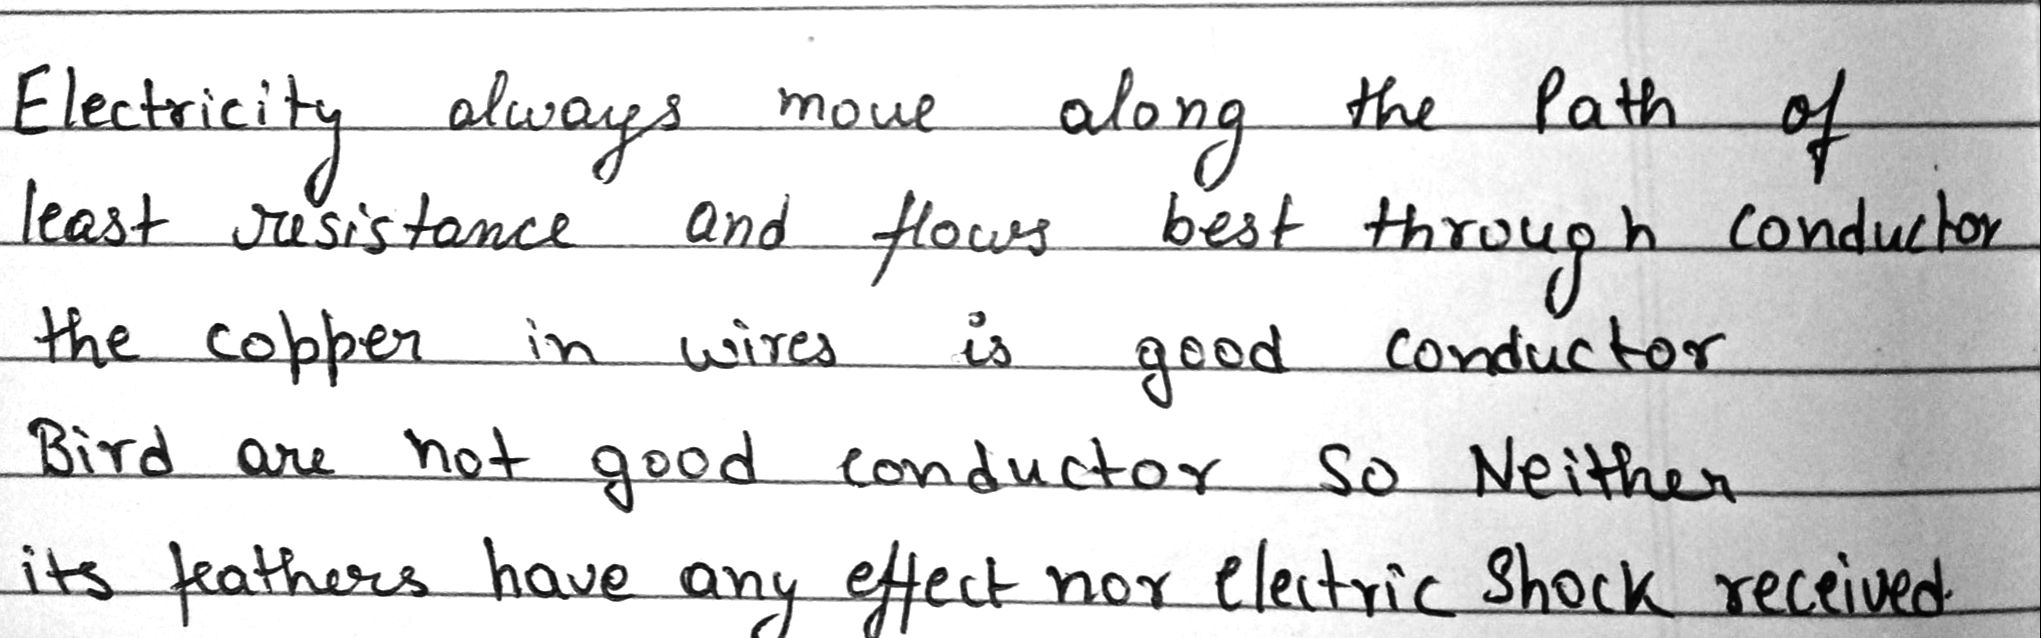 Electricity always move along the Path of
least resistance and flows best through conductor
the copper in wires is good conductor
Bird are not good conductor so Neither
its feathers have any effect nor electric Shock received.